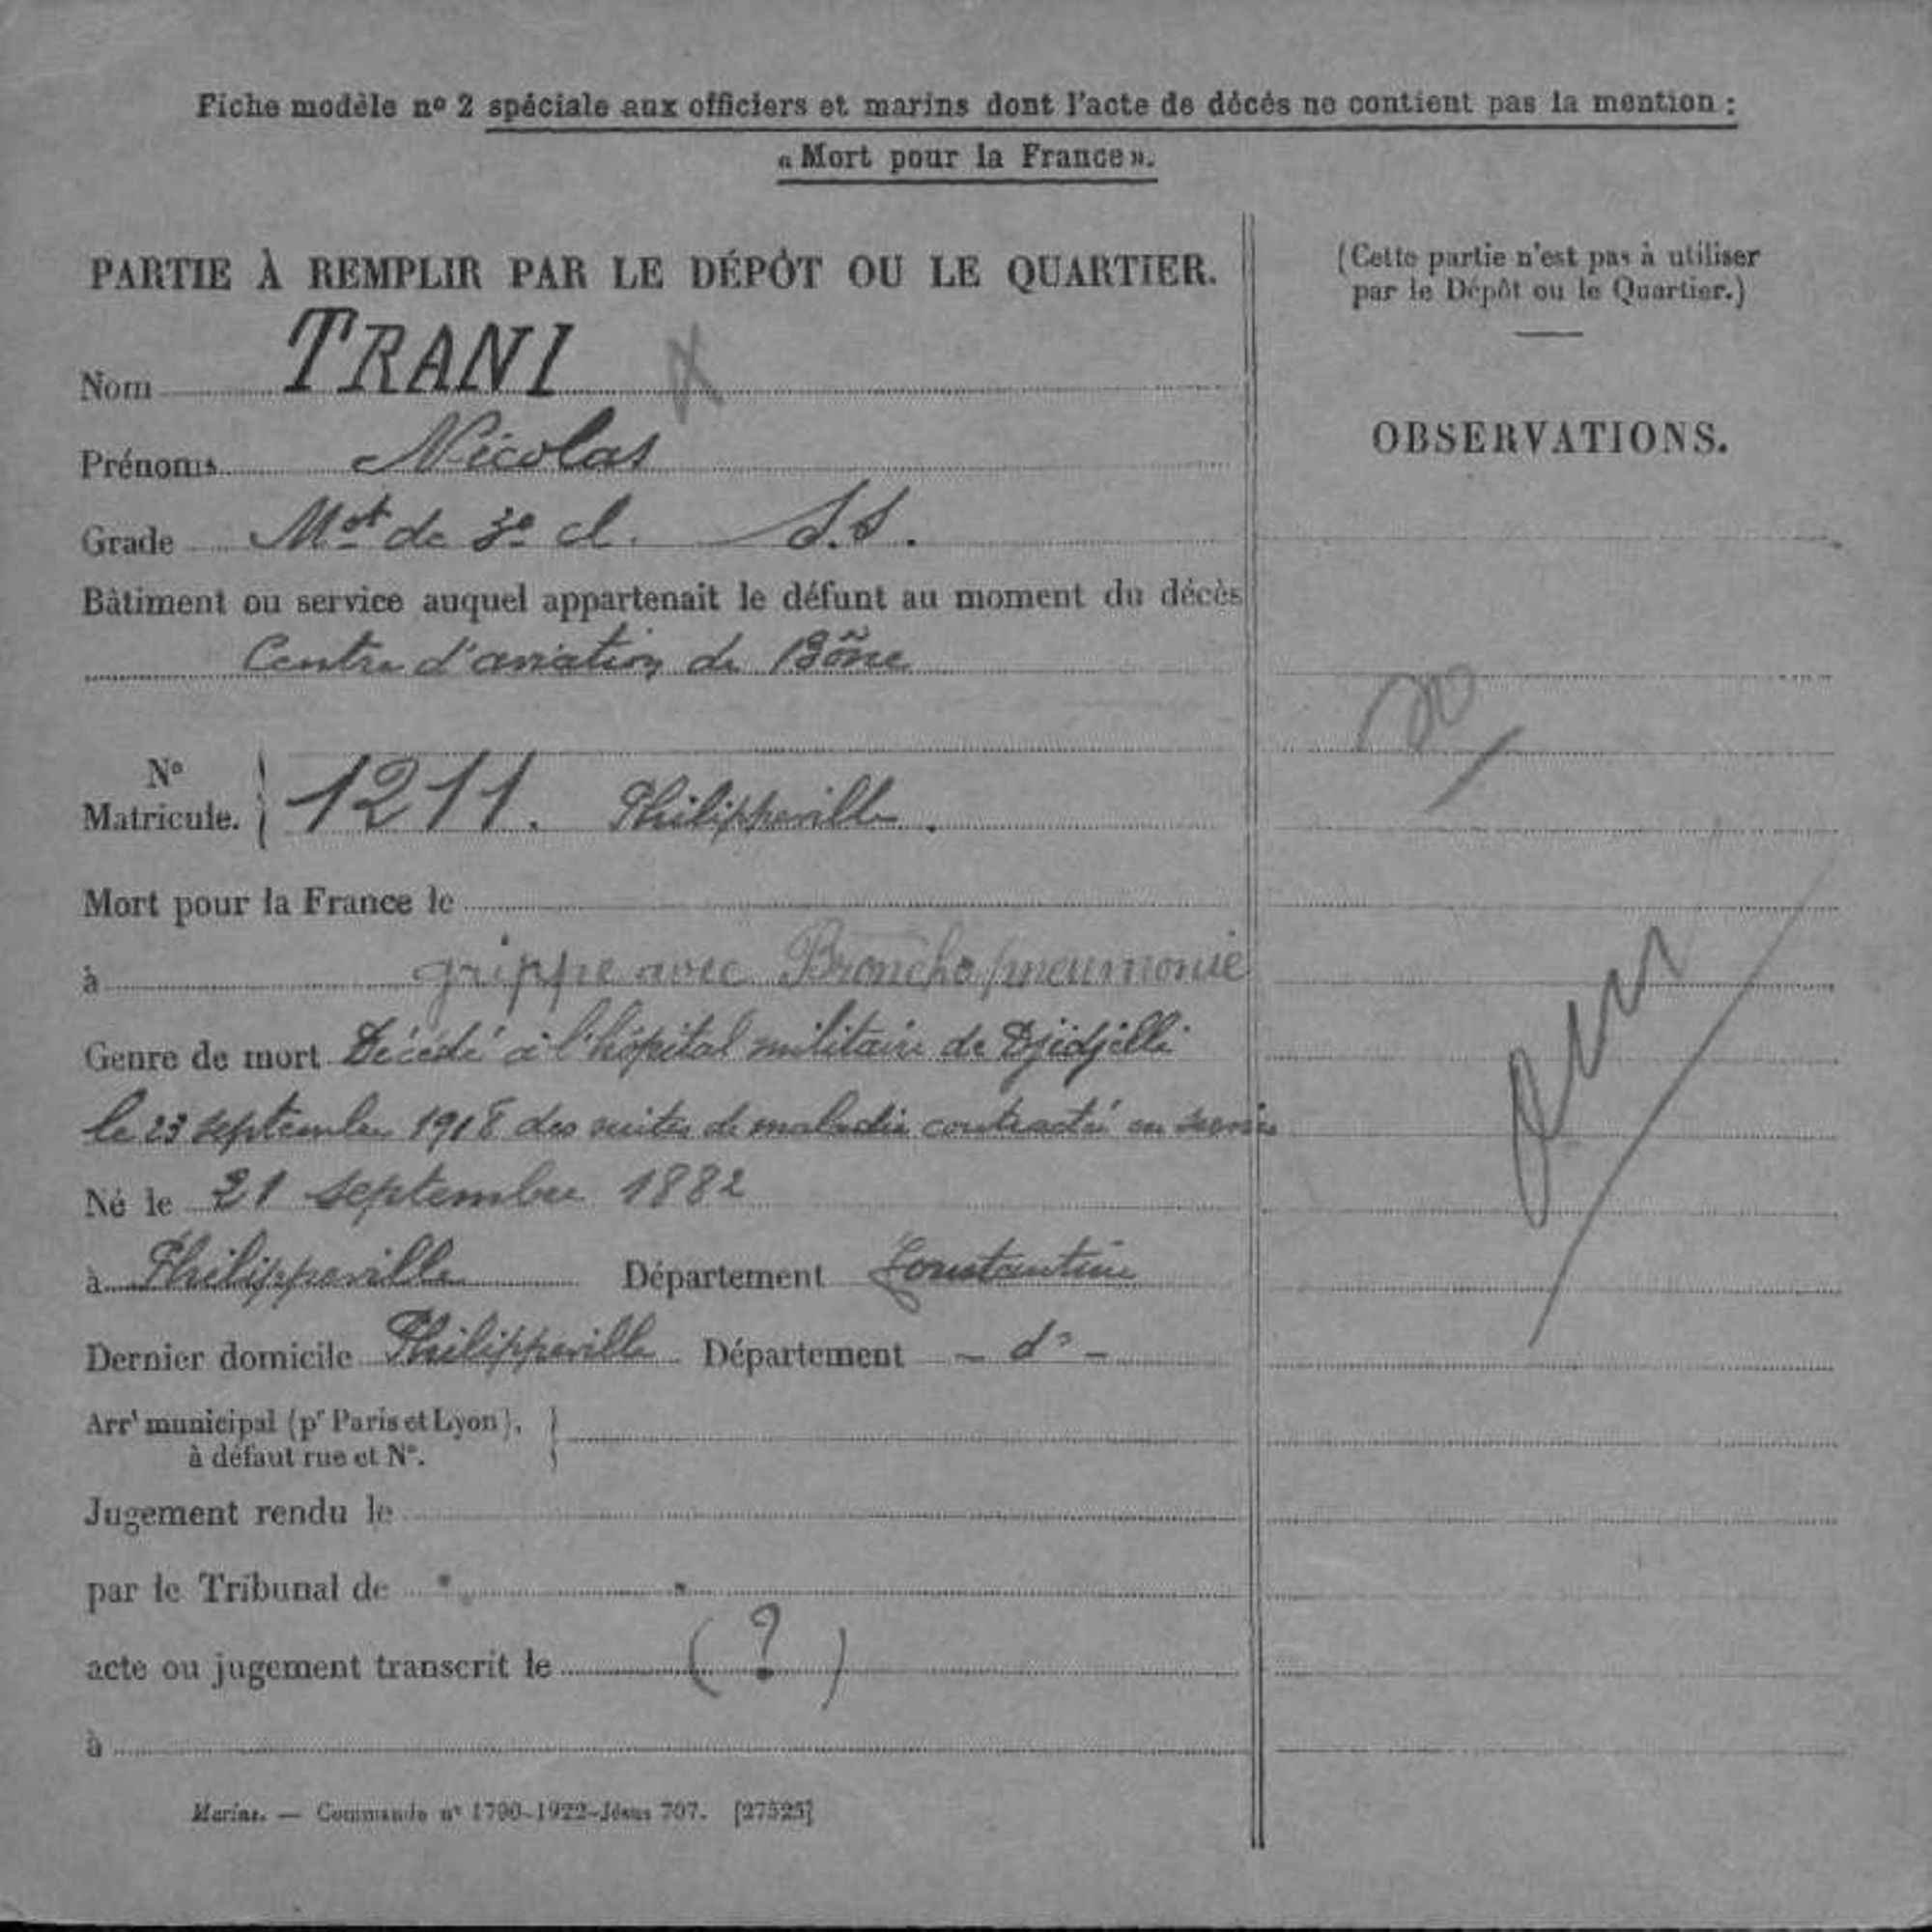 Fiche modèle nº 2 spéciale aux officiers et marins dont l'acte de décès ne contient pas la mention :
« Mort pour la France ».
PARTIE À REMPLIR PAR LE DÉPÔT OU LE QUARTIER.
Nom TRANI
Prénoms Nicolas
Grade Mot de 3e cl. S.S.
Bâtiment ou service auquel appartenait le défunt au moment du décès
Centre d'aviation de Bône
Nº Matricule. 1211. Philippeville.
Mort pour la France le
à grippe avec Broncho pneumonie
Genre de mort Décédé à l'hôpital militaire de Djidjelli
le 23 septembre 1918 des suites de maladie contracté en service
Né le 21 septembre 1882
à Philippeville Département Constantine
Dernier domicile Philippeville Département - dº -
Arrt municipal (pr Paris et Lyon),
à défaut rue et Nº.
Jugement rendu le
par le Tribunal de
acte ou jugement transcrit le (?)
à
Marine. — Commande nº 1790-1922-Jésus 707. [27525]
(Cette partie n'est pas à utiliser
par le Dépôt ou le Quartier.)
OBSERVATIONS.